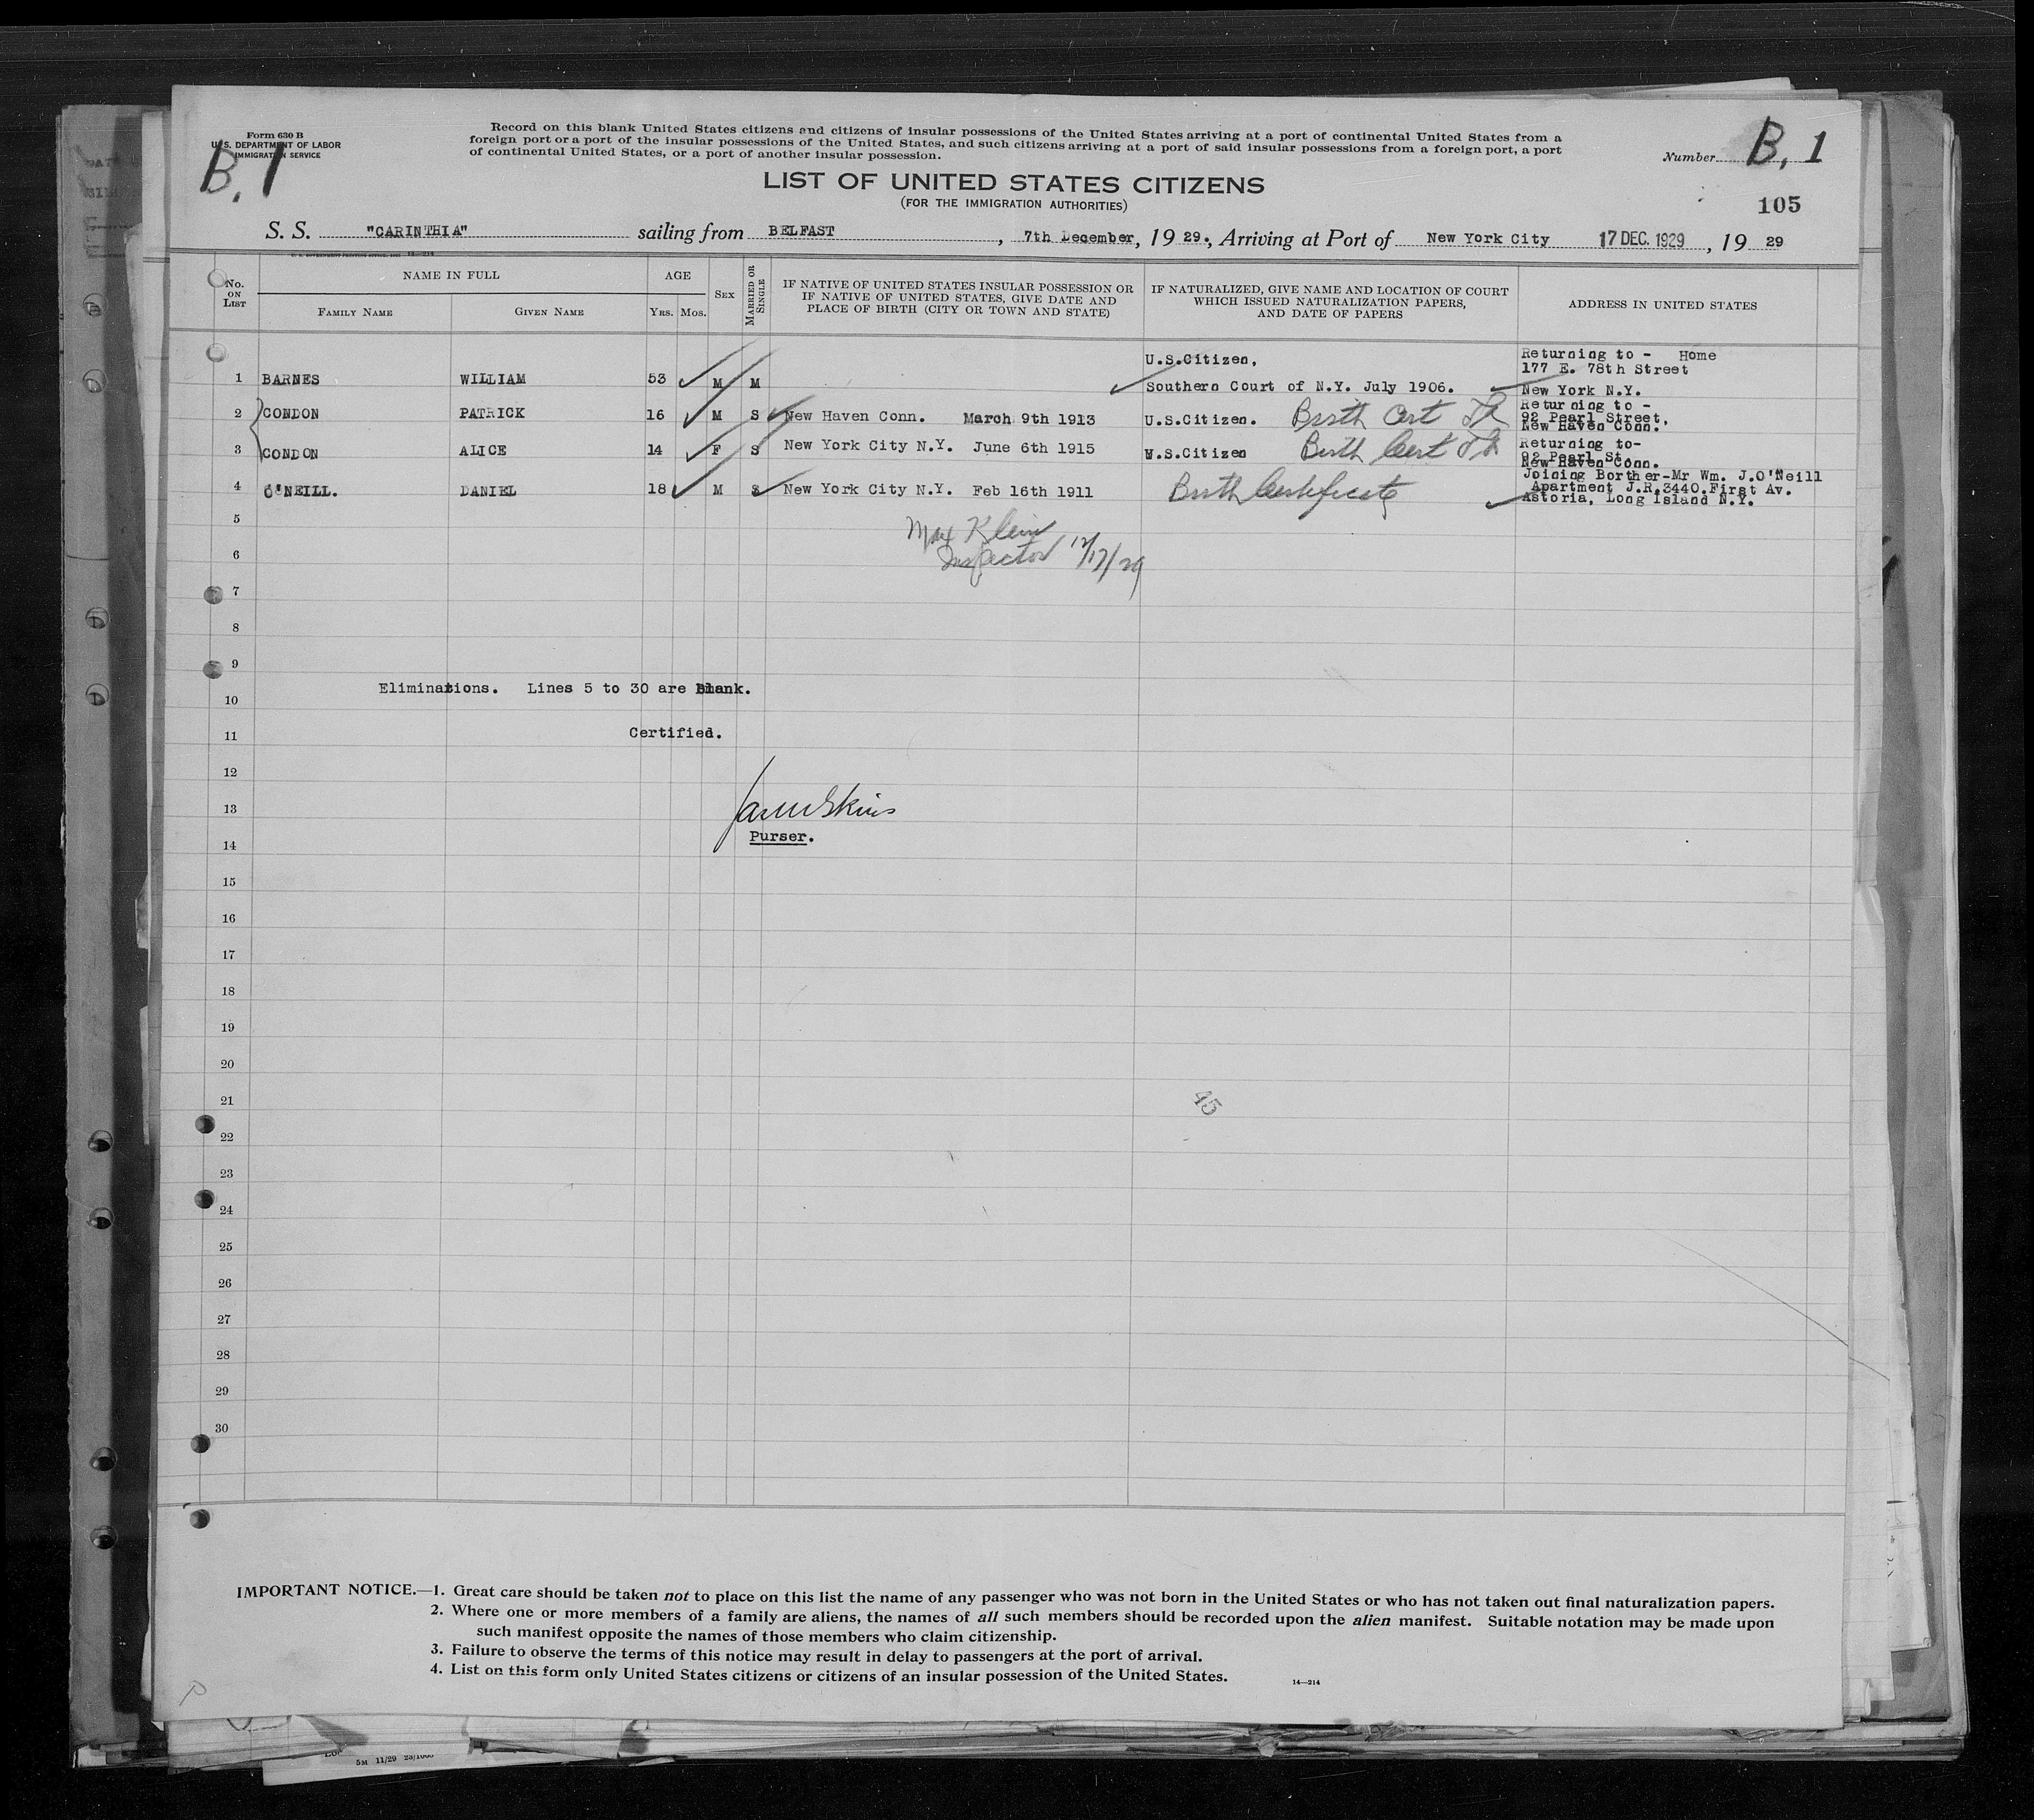 Form 630 B
U. S. DEPARTMENT OF LABOR
IMMIGRATION SERVICE
B. 1
Record on this blank United States citizens and citizens of insular possessions of the United States arriving at a port of continental United States from a
foreign port or a port of the insular possessions of the United States, and such citizens arriving at a port of said insular possessions from a foreign port, a port
of continental United States, or a port of another insular possession.
Number B, 1
LIST OF UNITED STATES CITIZENS
(FOR THE IMMIGRATION AUTHORITIES)
105
S. S. "CARINTHIA" sailing from BELFAST, 7th December, 19 29., Arriving at Port of New York City 17 DEC. 1929, 19 29
No. ON LIST
NAME IN FULL
FAMILY NAME
GIVEN NAME
AGE
YRS. MOS.
SEX
MARRIED OR SINGLE
IF NATIVE OF UNITED STATES INSULAR POSSESSION OR
IF NATIVE OF UNITED STATES, GIVE DATE AND
PLACE OF BIRTH (CITY OR TOWN AND STATE)
IF NATURALIZED, GIVE NAME AND LOCATION OF COURT
WHICH ISSUED NATURALIZATION PAPERS,
AND DATE OF PAPERS
ADDRESS IN UNITED STATES
1 BARNES WILLIAM 53 M M
U.S.Citizen,
Southern Court of N.Y. July 1906.
Returning to - Home
177 E. 78th Street
New York N.Y.
2 CONDON PATRICK 16 M S New Haven Conn. March 9th 1913 U.S.Citizen. Birth Cert
Returning to -
92 Pearl Street,
New Haven Conn.
3 CONDON ALICE 14 F S New York City N.Y. June 6th 1915 U.S.Citizen Birth Cert
Returning to-
92 Pearl St.
New Haven Conn.
4 O'NEILL. DANIEL 18 M S New York City N.Y. Feb 16th 1911 Birth Certificate
Joining Borther-Mr Wm. J.O'Neill
Apartment J.R.3440.First Av.
Astoria, Long Island N.Y.
5
Max Klein
6
Inspector 12/17/29
7
8
9
Eliminations. Lines 5 to 30 are Blank.
10
11
Certified.
12
13
Purser.
14
15
16
17
18
19
20
21
45
22
23
24
25
26
27
28
29
30
IMPORTANT NOTICE.—1. Great care should be taken not to place on this list the name of any passenger who was not born in the United States or who has not taken out final naturalization papers.
2. Where one or more members of a family are aliens, the names of all such members should be recorded upon the alien manifest. Suitable notation may be made upon
such manifest opposite the names of those members who claim citizenship.
3. Failure to observe the terms of this notice may result in delay to passengers at the port of arrival.
4. List on this form only United States citizens or citizens of an insular possession of the United States.
14—214
5M 11/29